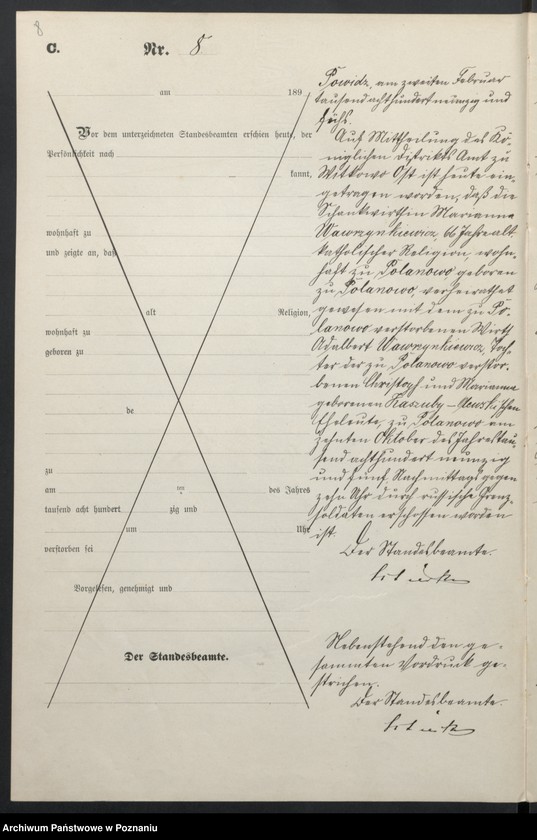 8
C.
Nr. 8
am 189
Vor dem unterzeichneten Standesbeamten erschien heute, der
Persönlichkeit nach
kannt,
wohnhaft zu
und zeigte an, daß
alt Religion,
wohnhaft zu
geboren zu
de
zu
am ten des Jahres
tausend acht hundert zig und
um Uhr
verstorben sei
Vorgelesen, genehmigt und
Der Standesbeamte.
Powidz, am zweiten Februar
tausend achthundert neunzig und
sechs.
Auf Mittheilung des Kö-
niglichen Distrikts Amt zu
Witkowo Ost ist heute ein-
getragen worden, daß die
Schankwirthin Marianna
Wawrzynkiewicz, 66 Jahre alt
katholischer Religion, wohn-
haft zu Polanowo geboren
zu Polanowo, verheirathet
gewesen mit dem zu Po-
lanowo verstorbenen Wirth
Adalbert Wawrzynkiewicz, Toch-
ter der zu Polanowo verstor-
benen Christoph und Marianna
geborenen Kaszuby-
Eheleute, zu Polanowo am
zehnten Oktober des Jahres tau-
send achthundert neunzig
und fünf Nachmittags gegen
zehn Uhr durch russische Grenz-
soldaten erschossen worden
ist.
Der Standesbeamte.
Nebenstehend den ge-
sammten Vordruck ge-
strichen.
Der Standesbeamte.
Archiwum Państwowe w Poznaniu